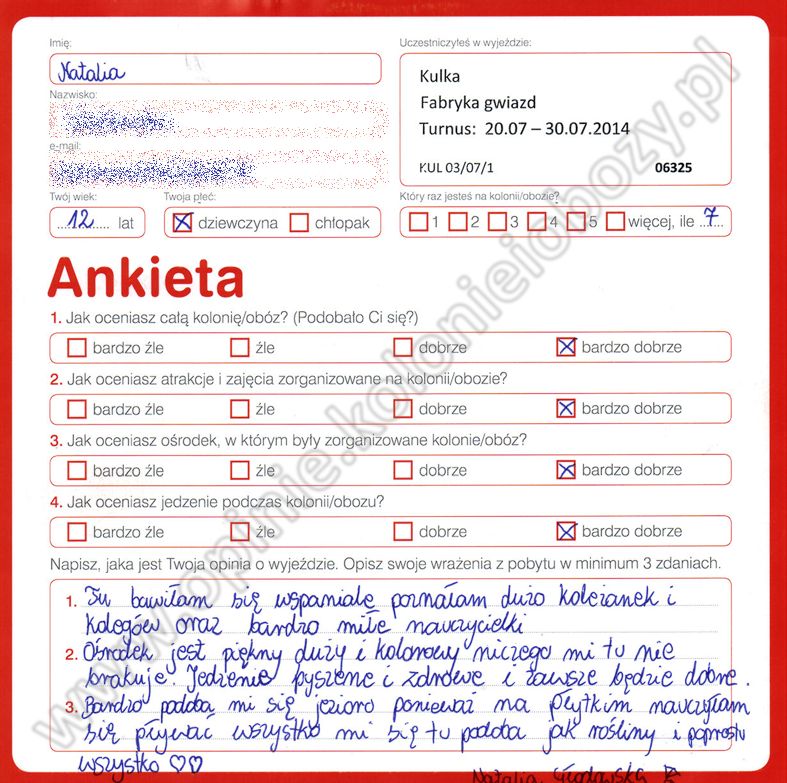 Imię:
Natalia
Nazwisko:
e-mail:
Twój wiek:
12 lat
Twoja płeć:
dziewczyna chłopak
Uczestniczyłeś w wyjeździe:
Kulka
Fabryka gwiazd
Turnus: 20.07 – 30.07.2014
KUL 03/07/1 06325
Który raz jesteś na kolonii/obozie?
1 2 3 4 5 więcej, ile 7
Ankieta
1. Jak oceniasz całą kolonię/obóz? (Podobało Ci się?)
bardzo źle źle dobrze bardzo dobrze
2. Jak oceniasz atrakcje i zajęcia zorganizowane na kolonii/obozie?
bardzo źle źle dobrze bardzo dobrze
3. Jak oceniasz ośrodek, w którym były zorganizowane kolonie/obóz?
bardzo źle źle dobrze bardzo dobrze
4. Jak oceniasz jedzenie podczas kolonii/obozu?
bardzo źle źle dobrze bardzo dobrze
Napisz, jaka jest Twoja opinia o wyjeździe. Opisz swoje wrażenia z pobytu w minimum 3 zdaniach.
1. Tu bawiłam się wspaniale poznałam dużo koleżanek i
kolegów oraz bardzo miłe nauczycielki
2. Ośrodek jest piękny duży i kolorowy niczego mi tu nie
brakuje. Jedzenie pyszne i zdrowe i zawsze będzie dobre.
3. Bardzo podoba mi się jezioro ponieważ na płytkim nauczyłam
się pływać wszystko mi się tu podoba jak rośliny i poprostu
wszystko ♡♡
Natalia
www.opinie.kolonieiobozy.pl